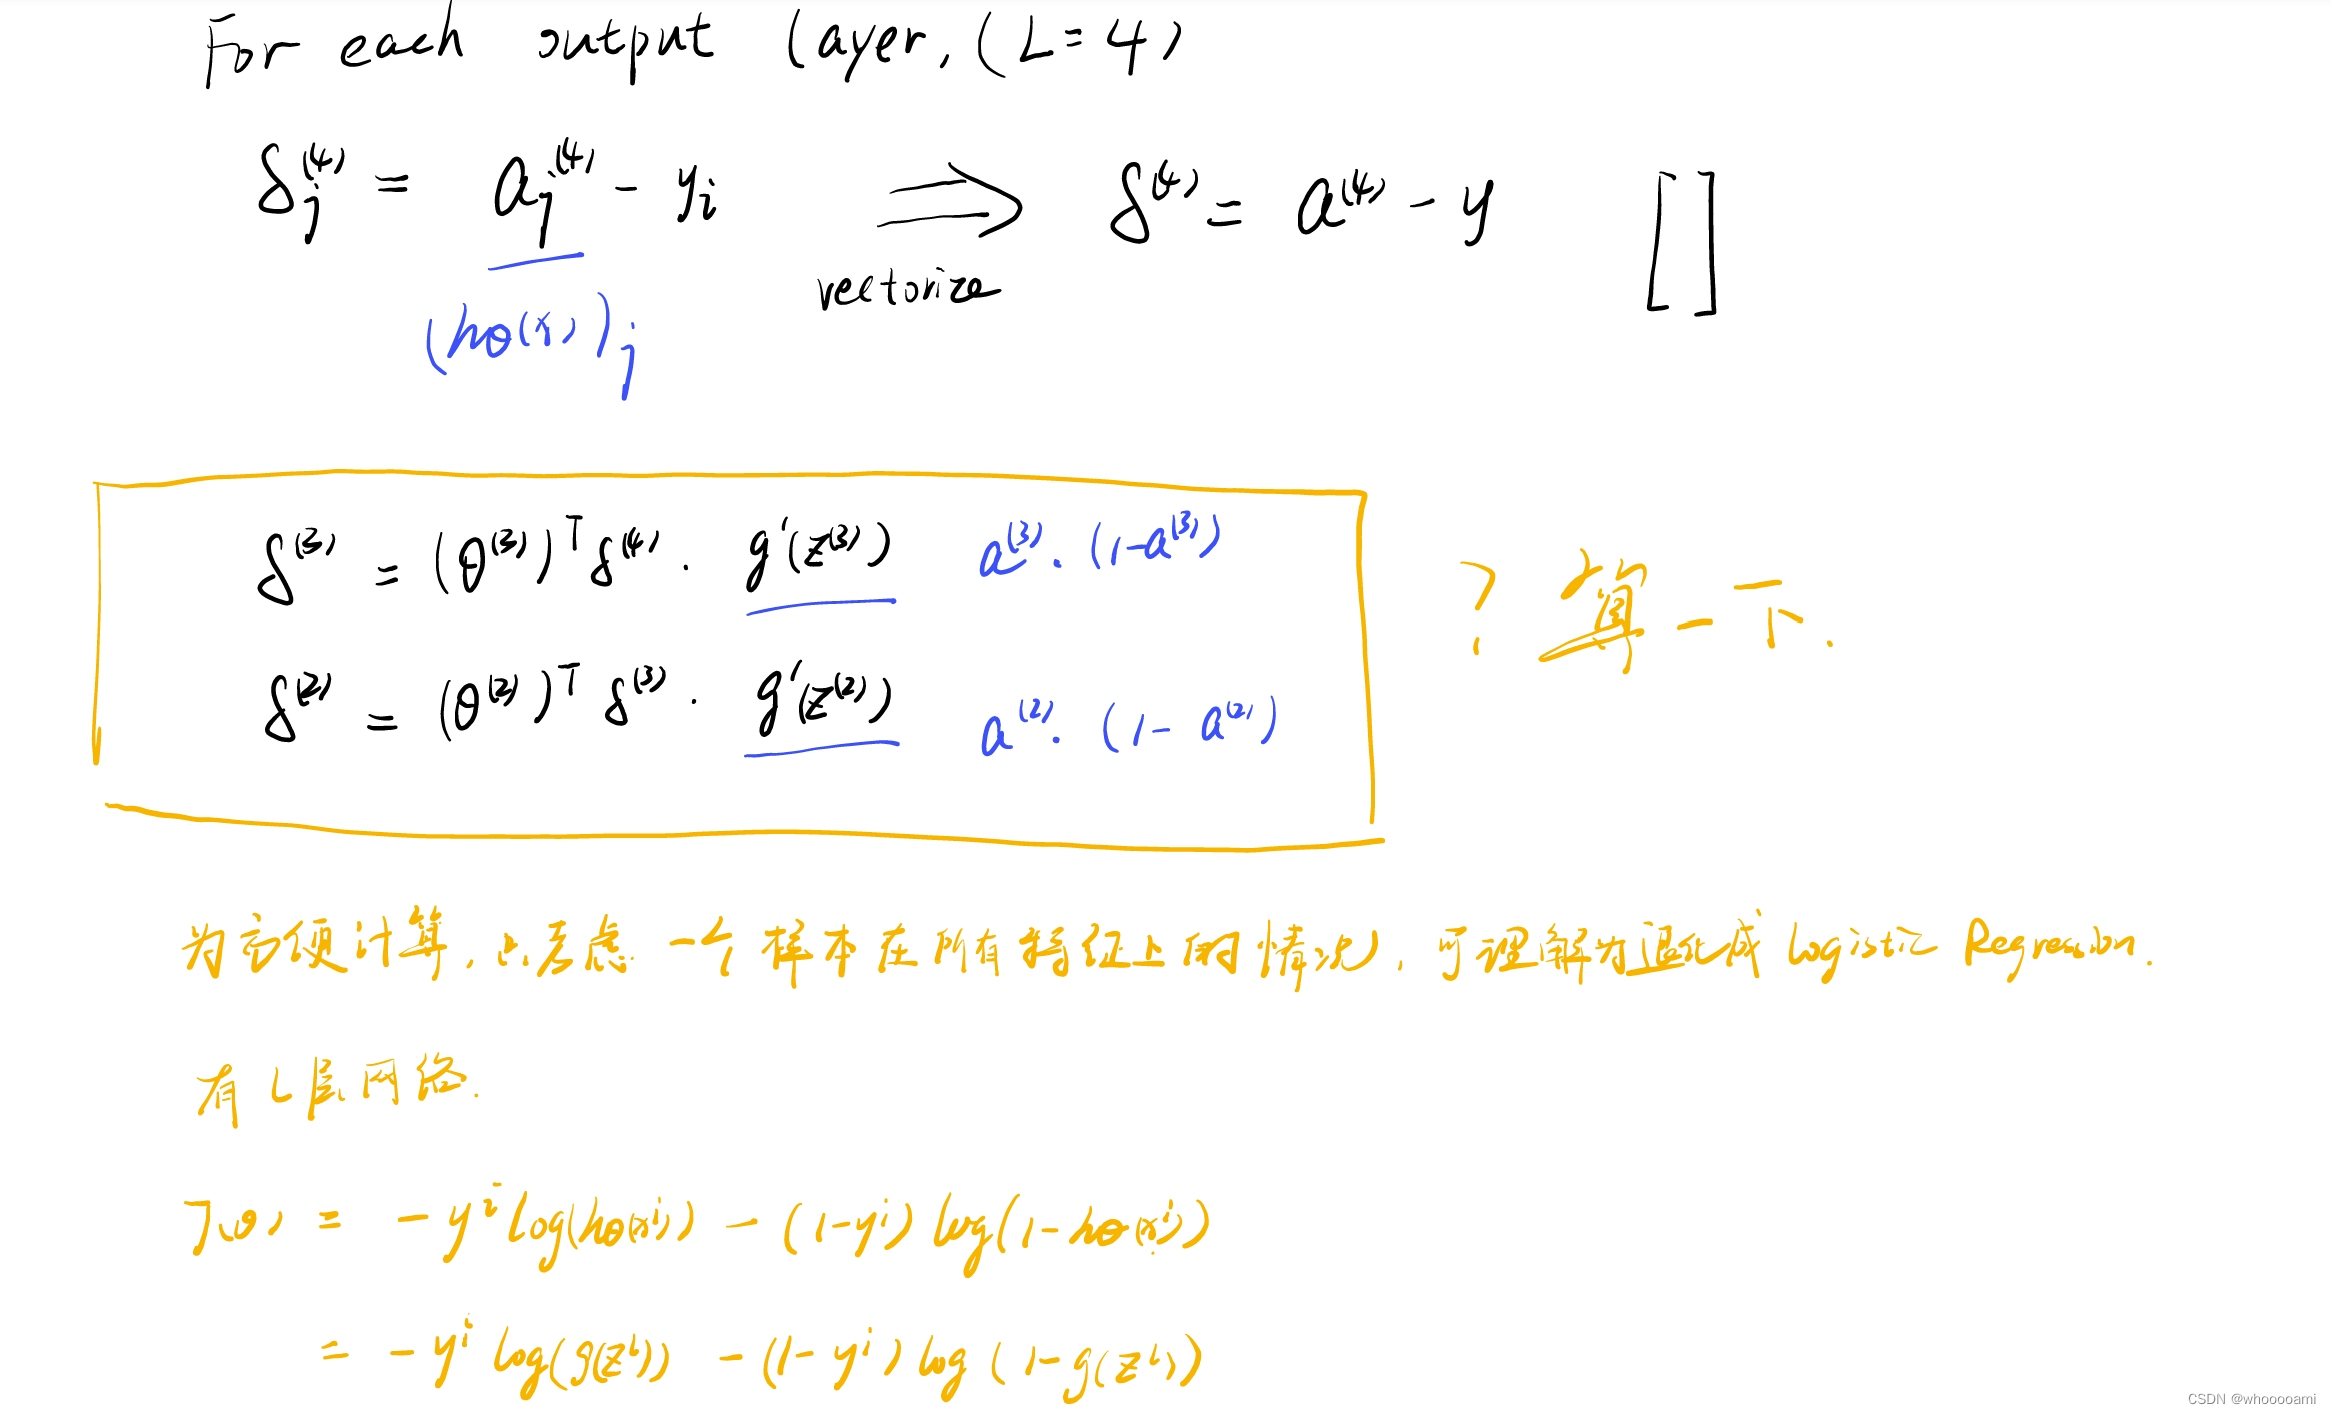 For each output layer, (L=4)
δⱼ⁽⁴⁾ = aⱼ⁽⁴⁾ - yᵢ ⟹ δ⁽⁴⁾ = a⁽⁴⁾ - y [ ]
vectorize
(hθ(x))ⱼ
δ⁽³⁾ = (θ⁽³⁾)ᵀ δ⁽⁴⁾ · g'(z⁽³⁾) a⁽³⁾ · (1-a⁽³⁾)
? 算一下.
δ⁽²⁾ = (θ⁽²⁾)ᵀ δ⁽³⁾ · g'(z⁽²⁾) a⁽²⁾ · (1- a⁽²⁾)
为方便计算, 只考虑一个样本在所有特征上的情况, 可理解为退化成 Logistic Regression.
有L层网络.
J(θ) = - yⁱ log(hθ(xⁱ)) - (1-yⁱ) log(1-hθ(xⁱ))
= - yⁱ log(g(zᴸ)) - (1-yⁱ) log (1-g(zᴸ))
CSDN @whooooami